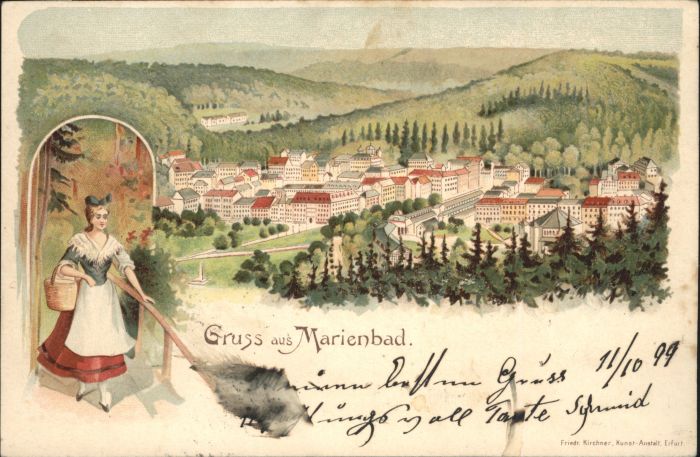 Gruss aus Marienbad.
11/10 99
besten Gruss
voll Tante
Friedr. Kirchner, Kunst-Anstalt, Erfurt.